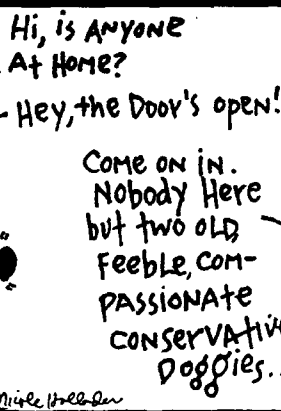 Hi, is ANYONE
At HoMe?
- Hey, the Door's open!
COMe oN iN.
Nobody Here
but two oLD,
Feeble, coM-
PASSioNAte
coNserVAtive
Doggies..
Nicole Hollander